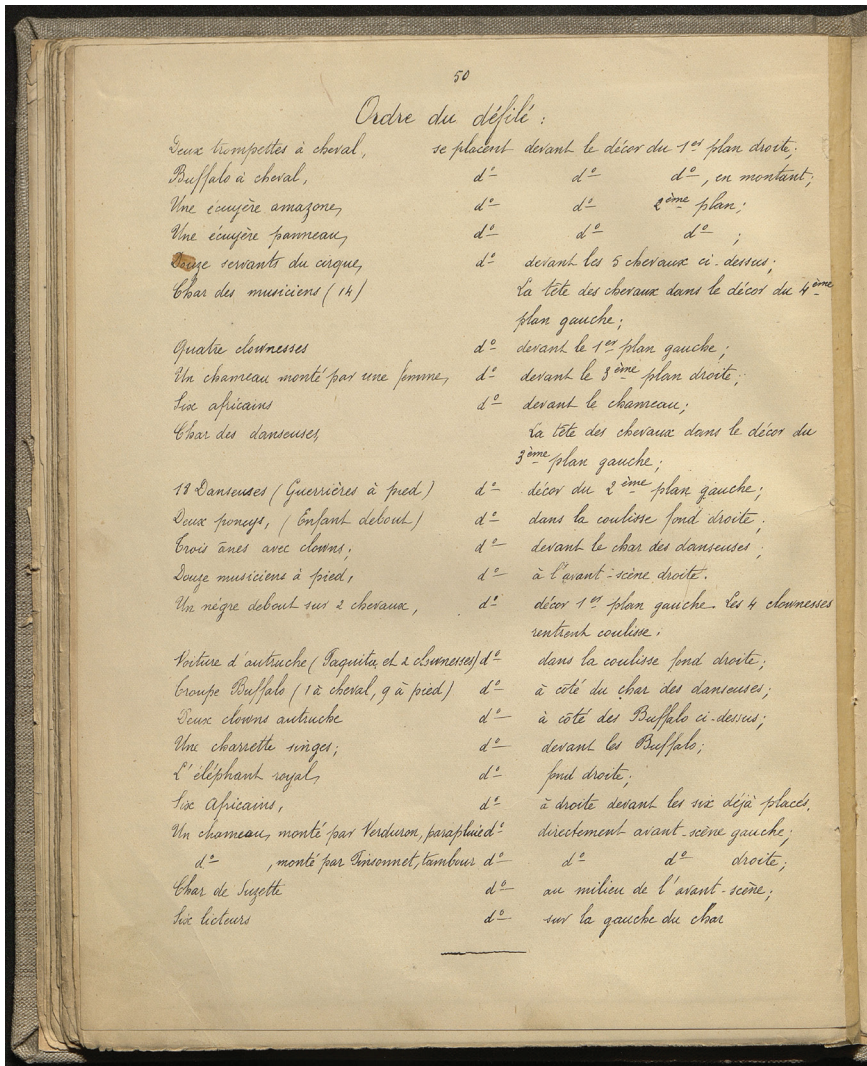 50
Ordre du défilé :
Deux trompettes à cheval, se placent devant le décor du 1er plan droite;
Buffalo à cheval, do do do, en montant;
Une écuyère amazone, do do 2ème plan;
Une écuyère panneau, do do do ;
Douze servants du cirque, do devant les 5 chevaux ci-dessus;
Char des musiciens (14) La tête des chevaux dans le décor du 4ème
plan gauche;
Quatre clownesses do devant le 1er plan gauche;
Un chameau monté par une femme, do devant le 3ème plan droite;
Six africains do devant le chameau;
Char des danseuses, La tête des chevaux dans le décor du
3ème plan gauche;
18 Danseuses (Guerrières à pied) do décor du 2ème plan gauche;
Deux poneys, (Enfant debout) do dans la coulisse fond droite;
Trois ânes avec clowns; do devant le char des danseuses;
Douze musiciens à pied, do à l'avant-scène droite.
Un nègre debout sur 2 chevaux, do décor 1er plan gauche. Les 4 clownesses
rentrent coulisse.
Voiture d'autruche (Paquita, et 2 clownesses) do dans la coulisse fond droite;
Troupe Buffalo (1 à cheval, 9 à pied) do à côté du char des danseuses;
Deux clowns autruche do à côté des Buffalo ci-dessus;
Une charrette singes; do devant les Buffalo;
L'éléphant royal, do fond droite;
Six Africains, do à droite devant les six déjà placés.
Un chameau, monté par Verduron, parapluie do directement avant-scène gauche;
do , monté par Pinsonnet, tambour do do do droite;
Char de Suzette do au milieu de l'avant-scène;
Six licteurs do sur la gauche du char